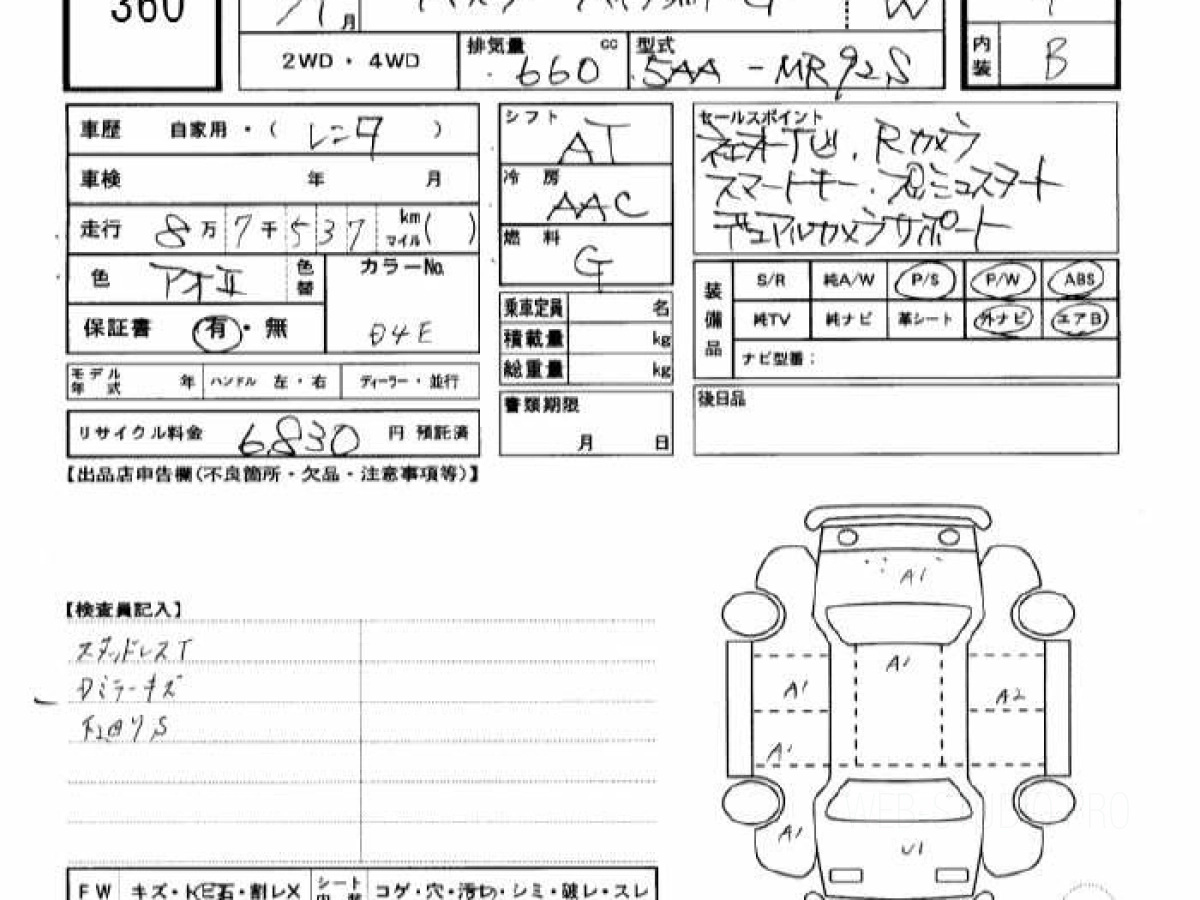 360
月
2WD・4WD
排気量 cc 660
型式 5AA-MR92S
内装 B
車歴 自家用・( レンタ )
車検 年 月
走行 8万7千537 km マイル( )
色 アオII 色替
カラーNo. D4E
保証書 有・無
モデル年式 年 ハンドル 左・右 ディーラー・並行
リサイクル料金 6,830 円 預託済
シフト AT
冷房 AAC
燃料 G
乗車定員 名
積載量 kg
総重量 kg
書類期限
月 日
セールスポイント
TV. Rカメラ
スマートキー.
デュアルカメラサポート
装備品
S/R 純A/W P/S P/W ABS
純TV 純ナビ 革シート 外ナビ エアB
ナビ型番:
後日品
【出品店申告欄(不良箇所・欠品・注意事項等)】
【検査員記入】
スタッドレスT
Dミラーキズ
下回りS
A1
A1
A1
A2
A1
A1
U1
WEB-STUDIO PRO
FW キズ・トビ石・割レX
シート コゲ・穴・汚レ・シミ・破レ・スレ